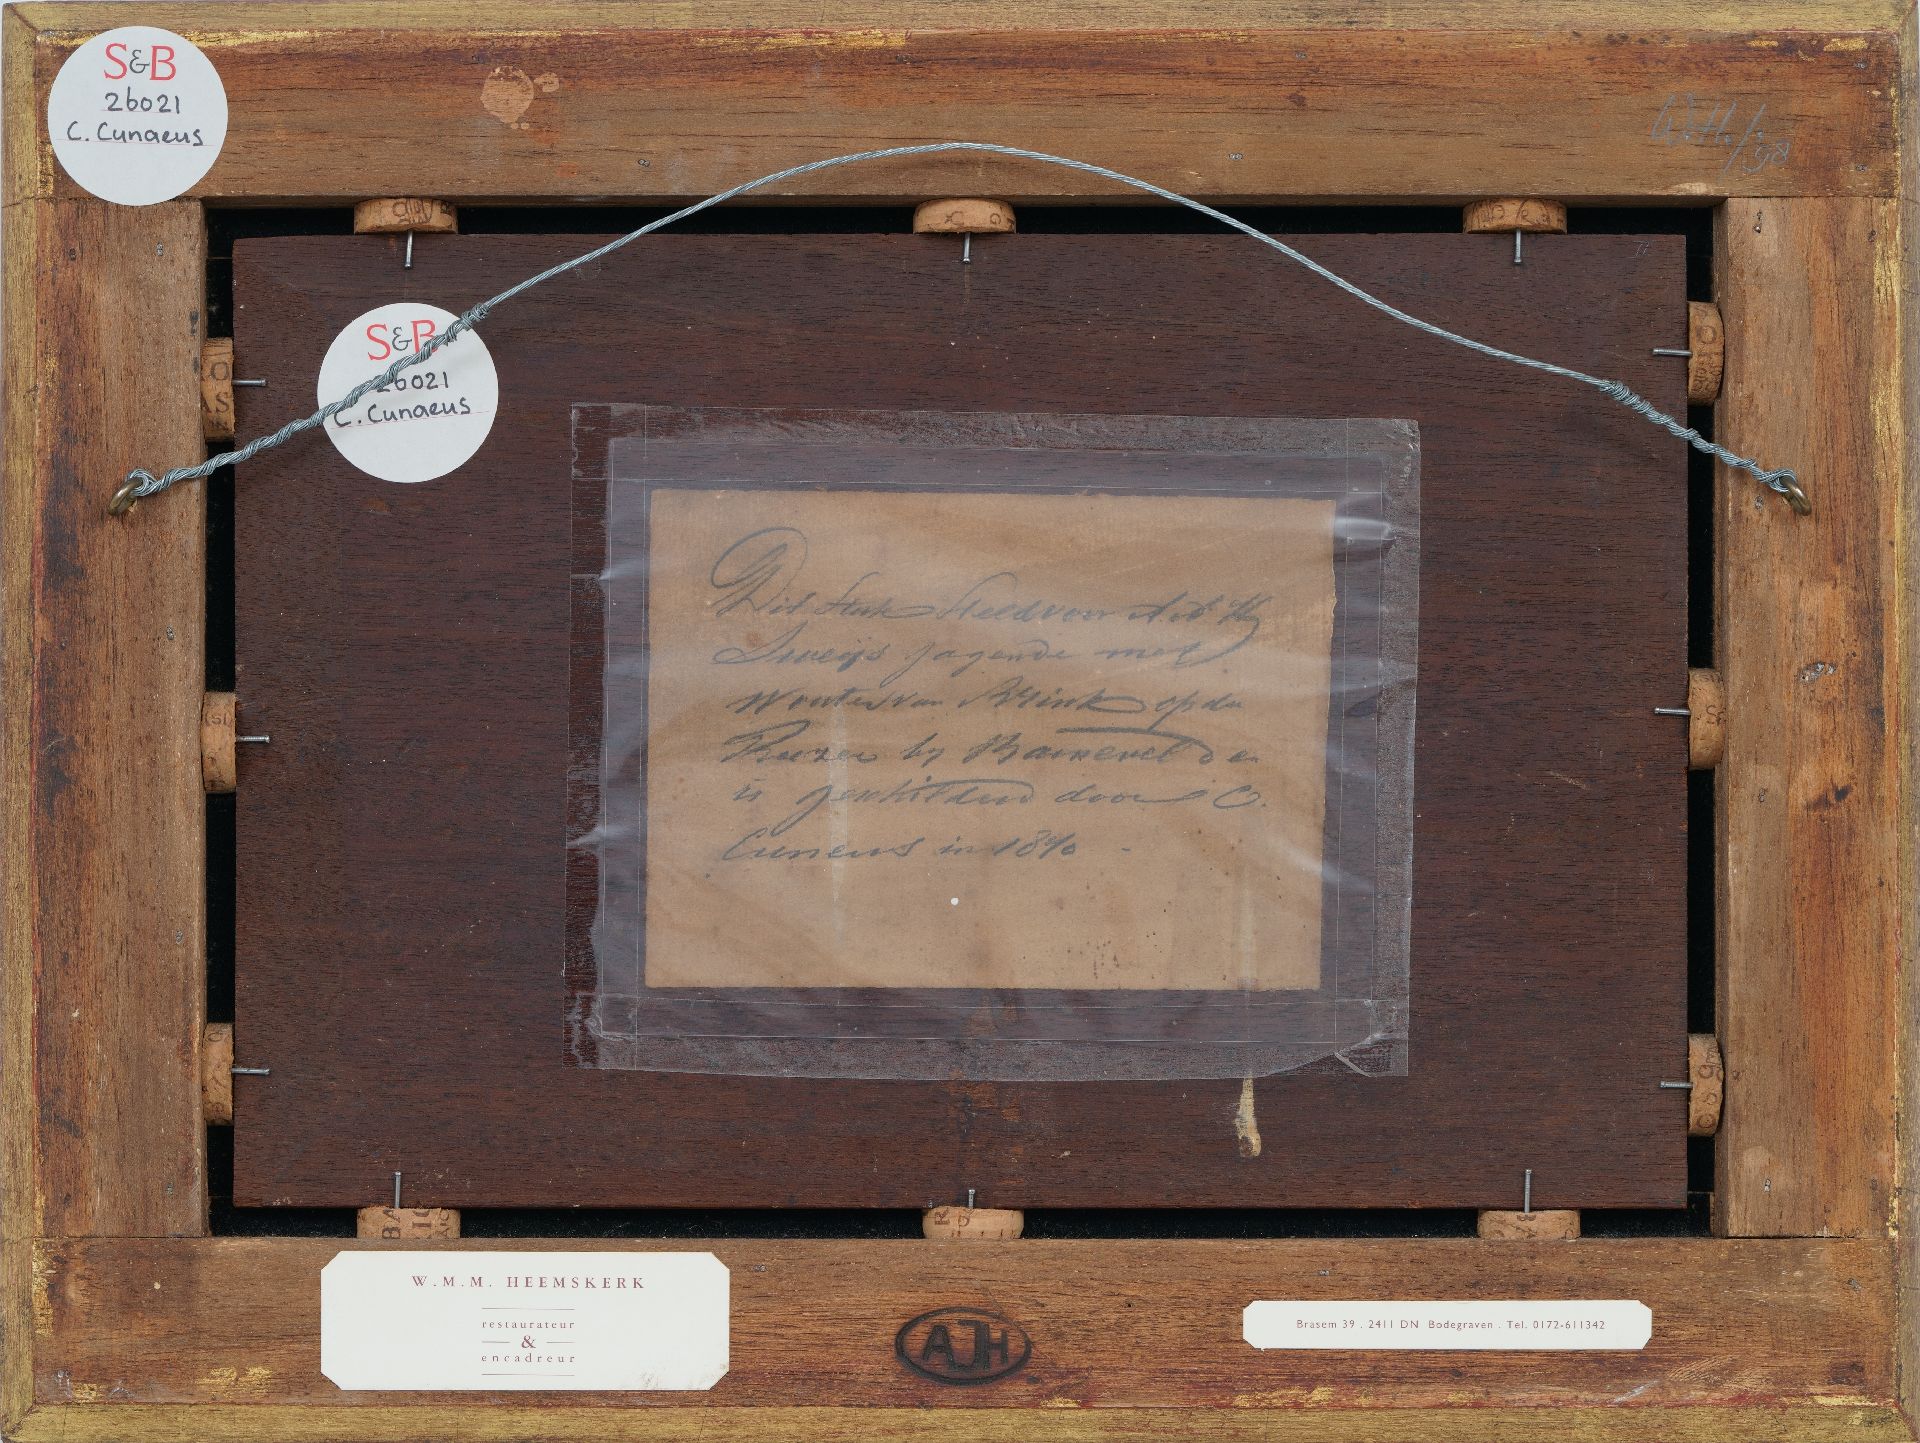 S&B
26021
C. Cunaeus
S&B
26021
C. Cunaeus
98
Dit Stuk Steld voor
jagende met
Wouter van Brink op de
by Barneveld en
is geschilderd door C.
Cuneus in 1890
W.M.M. HEEMSKERK
restaurateur
&
encadreur
AJH
Brasem 39 . 2411 DN Bodegraven . Tel. 0172-611342